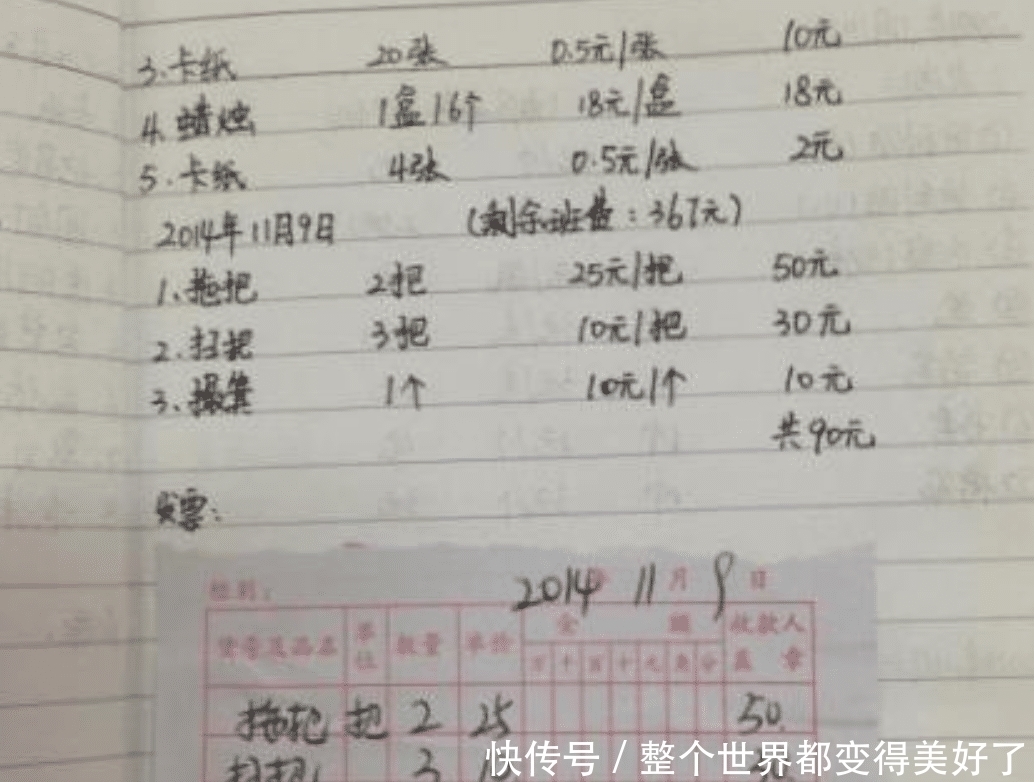 3.卡纸 20张 0.5元/张 10元
4.蜡烛 1盒16个 18元/盒 18元
5.卡纸 4张 0.5元/张 2元
2014年11月9日 (剩余班费:367元)
1.拖把 2把 25元/把 50元
2.扫把 3把 10元/把 30元
3.撮箕 1个 10元/个 10元
共90元
发票:
2014年 11月 9日
货号及品名 单位 数量 单价 金额 收款人
百 十 元 角 分 盖章
拖把 把 2 25 50
扫把 3
快传号/整个世界都变得美好了